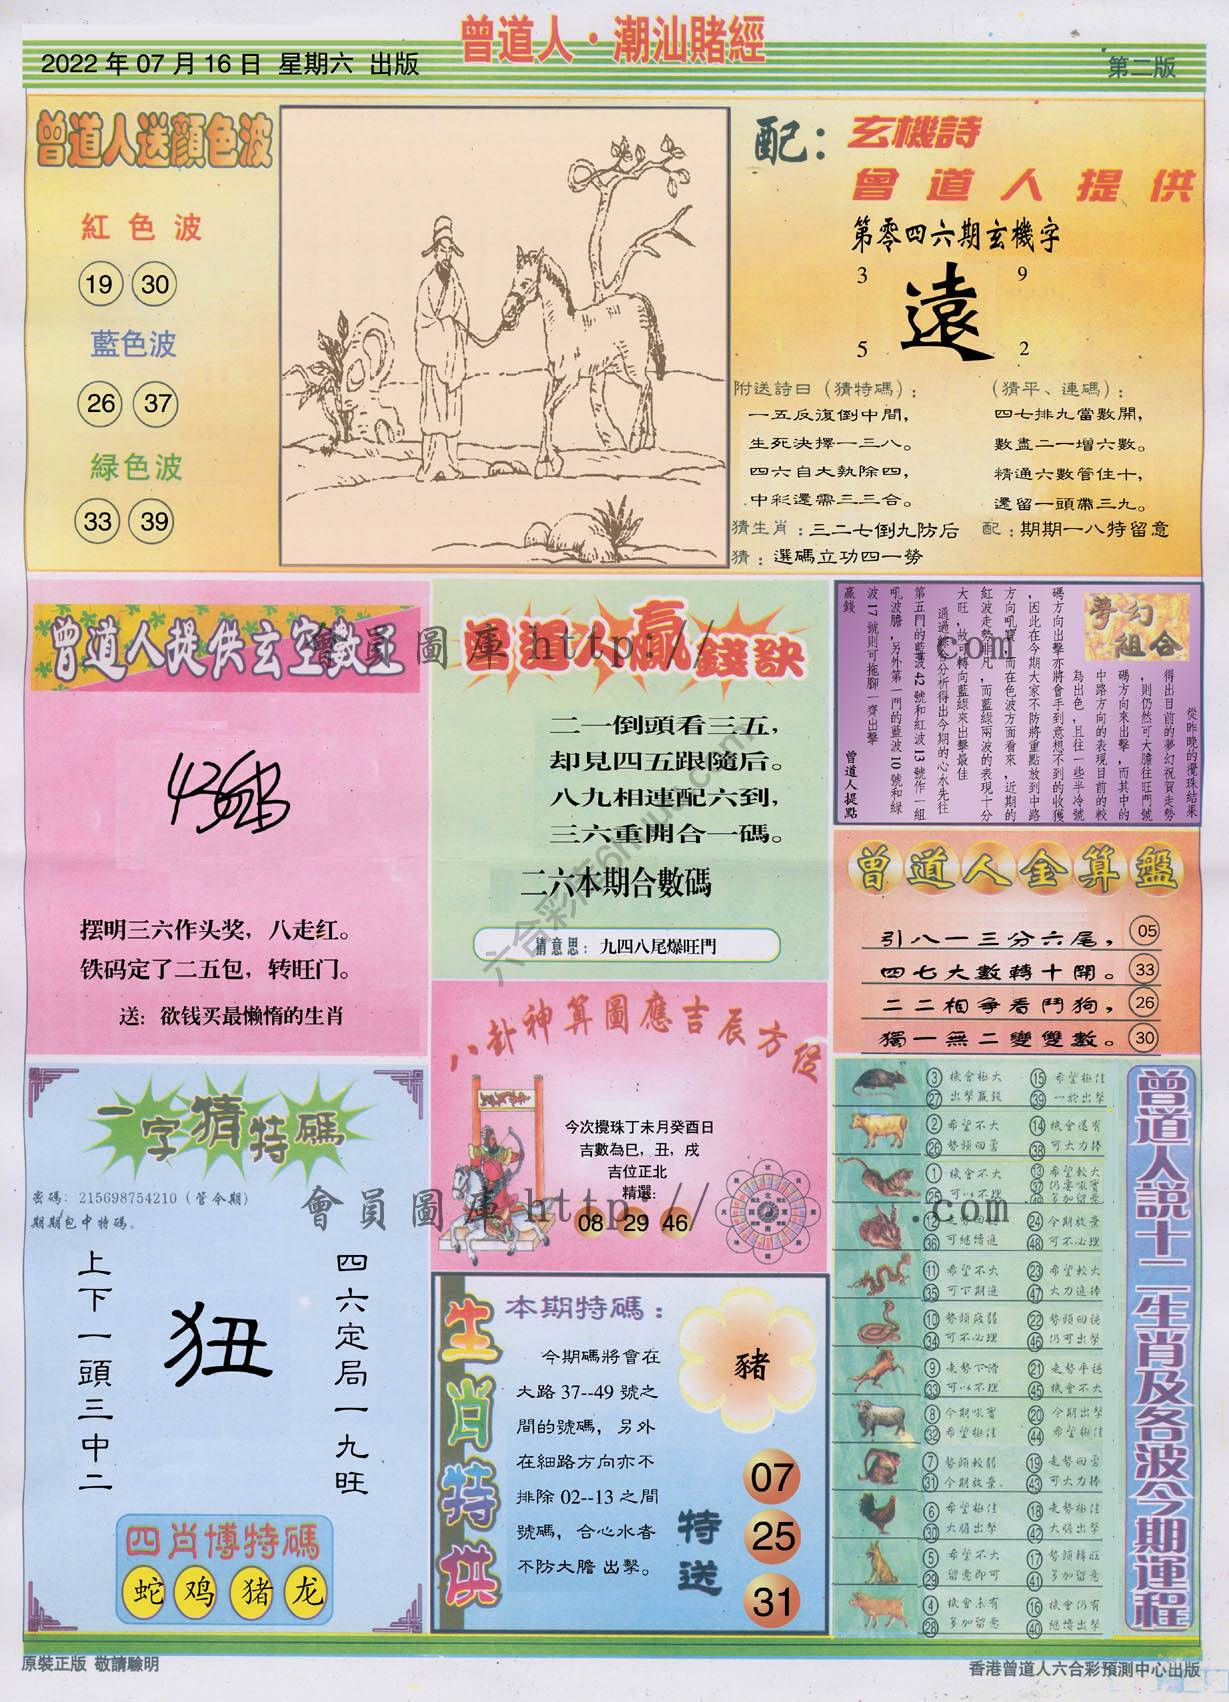 曾道人·潮汕賭經
2022 年 07 月 16 日 星期六 出版
第二版
曾道人送顏色波
紅色波
19 30
藍色波
26 37
緑色波
33 39
配：玄機詩
曾道人提供
第零四六期玄機字
3 9
遠
5 2
附送詩曰（猜特碼）：
一五反復倒中間，
生死決擇一三八。
四六自大執除四，
中彩還需三三合。
（猜平、連碼）：
四七排九當數開，
數盡二一增六數。
精通六數管住十，
還留一頭帶三九。
猜生肖：三二七倒九防后
配：期期一八特留意
猜：選碼立功四一勞
曾道人提供玄空數王
摆明三六作头奖，八走红。
铁码定了二五包，转旺门。
送：欲钱买最懒惰的生肖
曾道人贏錢訣
二一倒頭看三五，
却見四五跟隨后。
八九相連配六到，
三六重開合一碼。
二六本期合數碼
猜意思：九四八尾爆旺門
夢幻組合
從昨晚的攪珠結果
得出目前的夢幻祝賀走勢
，則仍然可大膽往旺門號
碼方向來出擊，而其中的
中路方向的表現目前的較
為出色，且往一些半冷號
碼方向出擊亦將會手到意想不到的收獲
，因此在今期大家不防將重點放到中路
方向吼寶，而在色波方面看來，近期的
紅波走勢非凡，而藍綠兩波的表現十分
大旺，故可轉向藍綠來出擊最佳
通過綜合分析得出今期的心水先往
第五門的藍波 42 號和紅波 13 號作一組
吼波膽，另外第一門的藍波 10 號和綠
波 17 號則可拖腳一齊出擊
贏錢
曾道人提點
曾道人金算盤
引八一三分六尾， 05
四七大數轉十開。 33
二二相爭看鬥狗， 26
獨一無二變雙數。 30
八卦神算圖應吉辰方位
今次攪珠丁未月癸酉日
吉數為巳，丑，戌
吉位正北
精選：
08 29 46
一字猜特碼
密碼：215698754210（管令期）
期期包中特碼。
上下一頭三中二
狃
四六定局一九旺
四肖博特碼
蛇 鸡 猪 龙
生肖特供
本期特碼：
今期碼將會在
大路 37--49 號之
間的號碼，另外
在細路方向亦不
排除 02--13 之間
號碼，合心水者
不防大膽 出擊。
豬
特送
07
25
31
曾道人説十二生肖及各波今期運程
3 機會極大 15 希望極佳
27 出擊贏錢 39 一於出擊
2 希望不大 14 機會還有
26 勢頭回勇 38 可大力捧
1 機會不大 13 希望較大
25 可以不理 37 仍要吼實
49 多加留意
24 今期放棄
36 可繼續進 48 可不必理
11 希望不大 23 希望較大
35 可下期進 47 大力進捧
10 勢頭疲弱 22 勢頭回穩
34 可不必理 46 仍可出擊
9 走勢下滑 21 走勢平穩
33 可以不理 45 機會不大
8 今期吼實 20 今期出擊
32 希望極佳 44 希望極佳
7 勢頭較弱 19 走勢回勇
31 今期放棄、 43 可大力捧
6 希望極佳 18 走勢極佳
30 大膽出擊 42 大膽出擊
5 希望不大 17 勢頭轉旺
29 留意即可 41 多加留意
4 機會未有 16 機會仍有
28 多加留意 40 繼續出擊
會員圖庫 http://
.com
會員圖庫 http://
.com
原裝正版 敬請驗明
香港曾道人六合彩預測中心出版